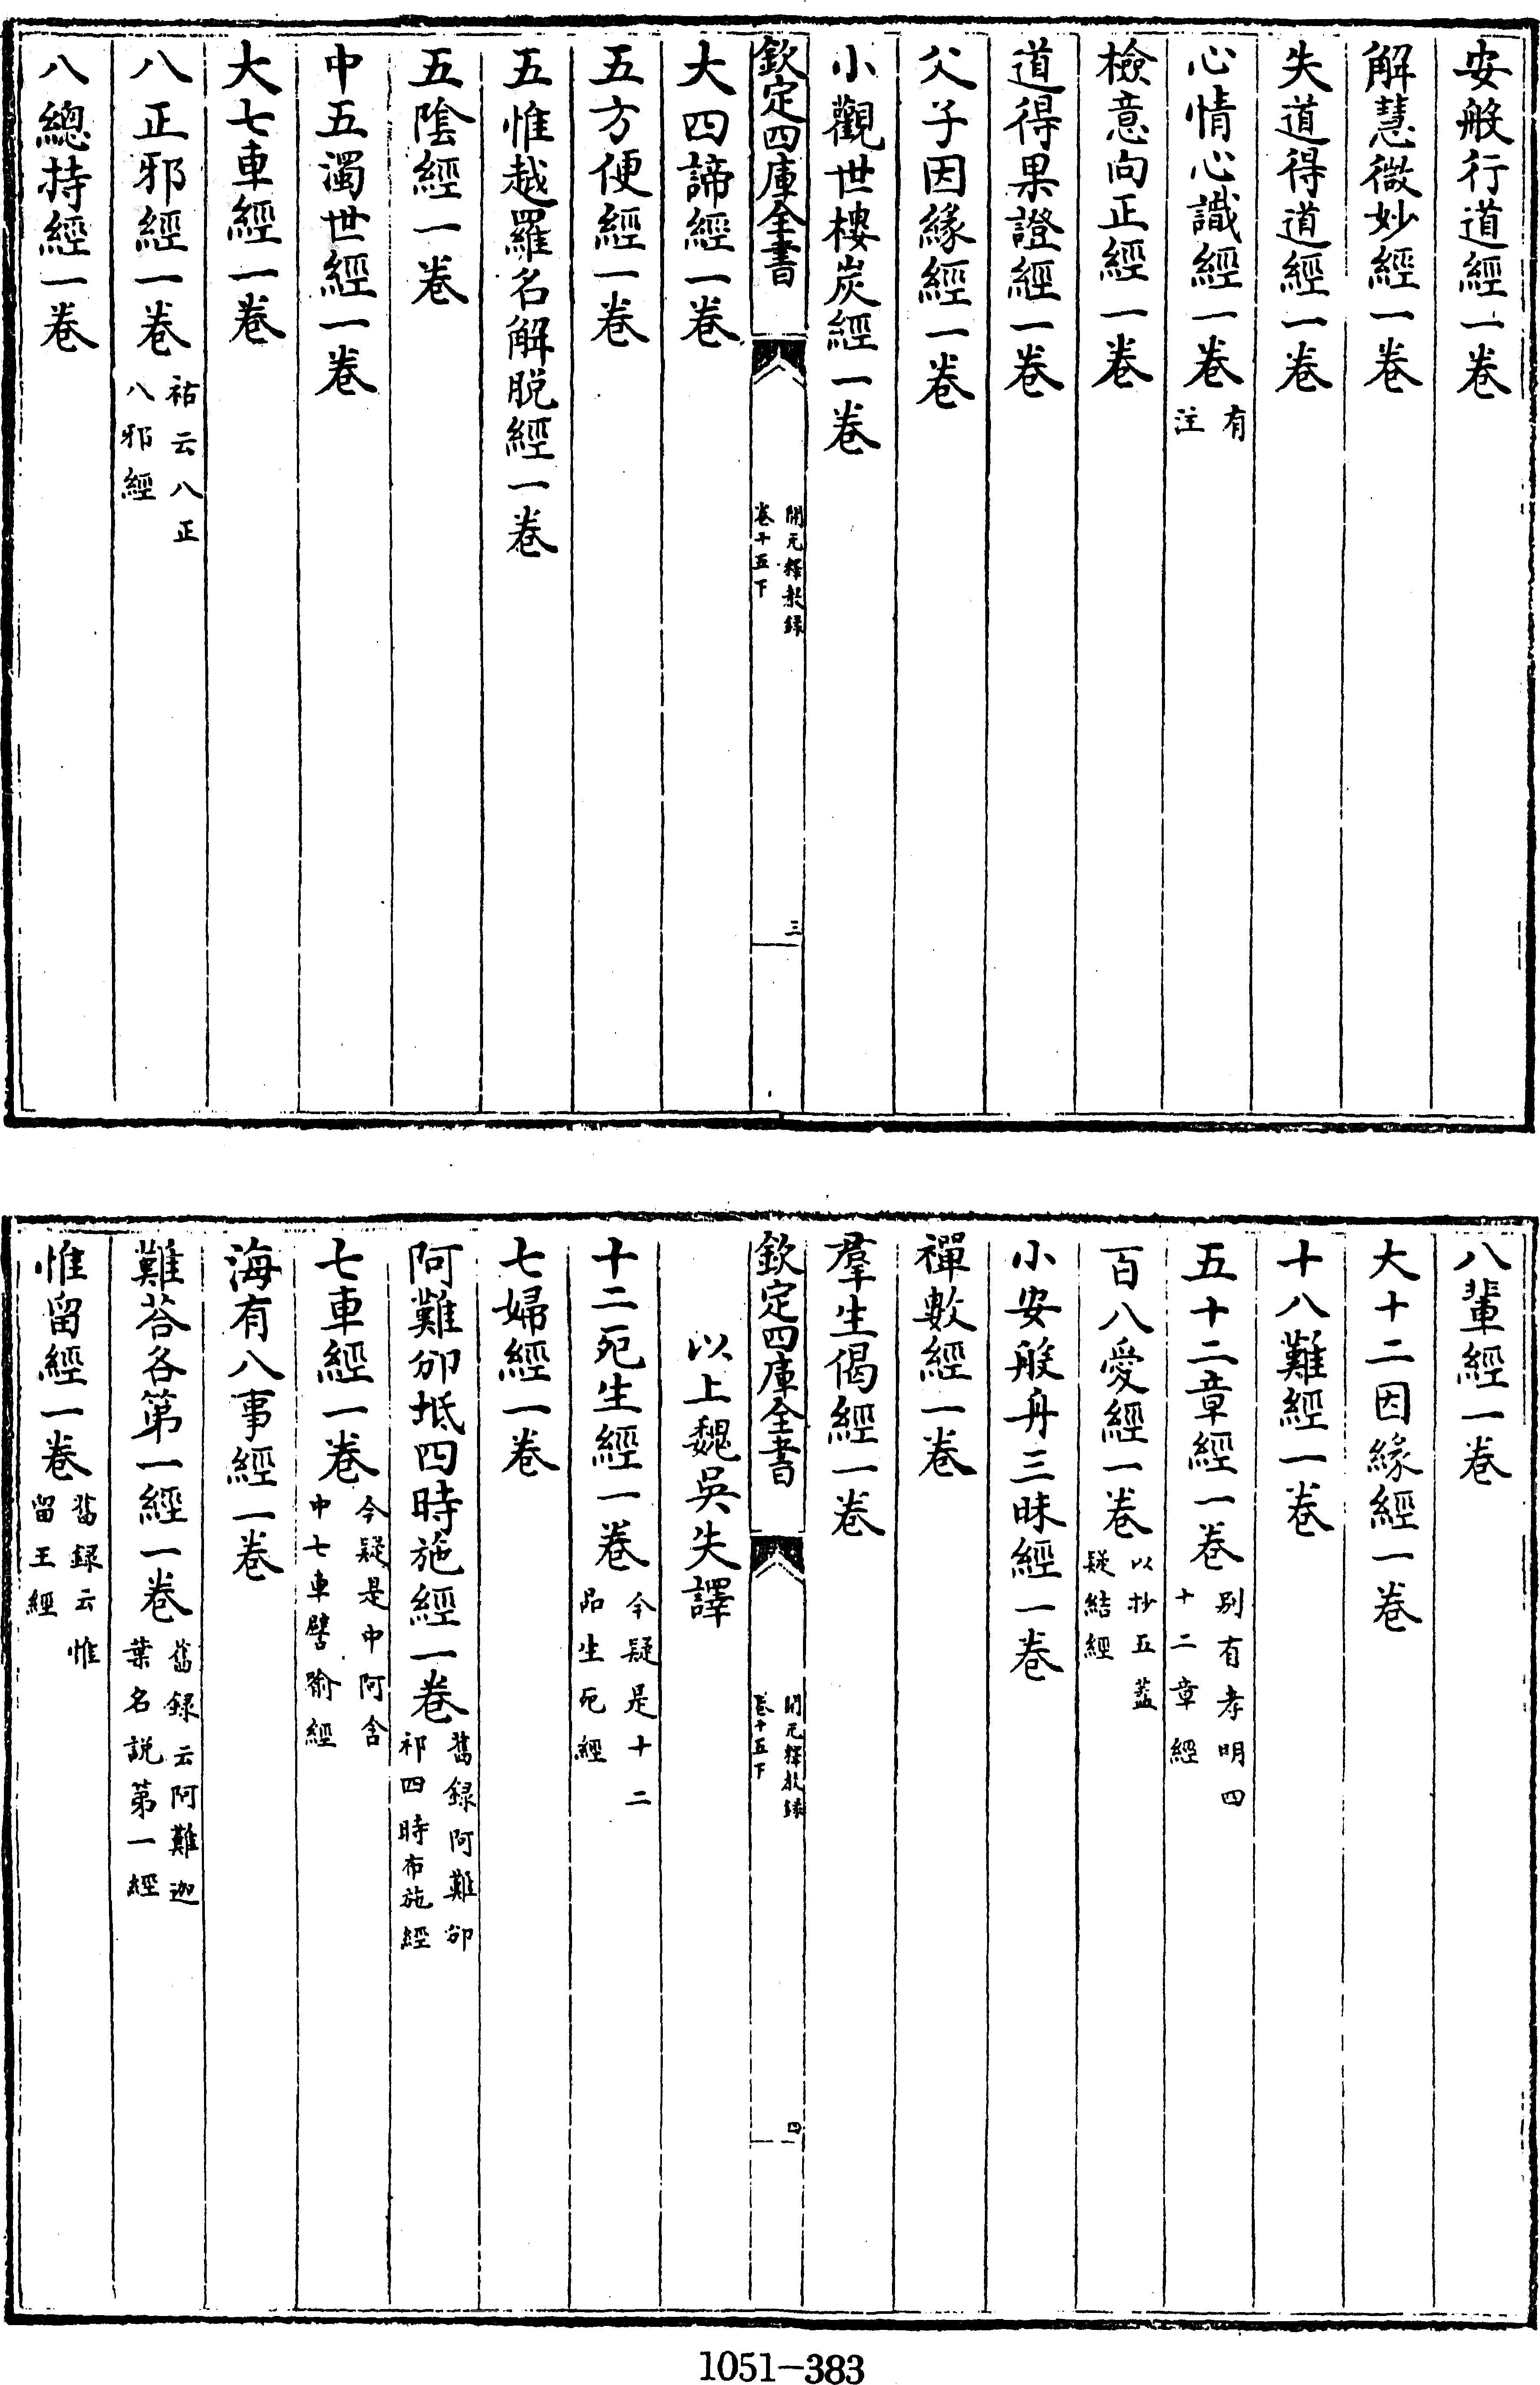 安般行道經一卷
解慧微妙經一卷
失道得道經一卷
心情心識經一卷有注
檢意向正經一卷
道得果證經一卷
父子因緣經一卷
小觀世樓炭經一卷
欽定四庫全書
開元釋教録
卷十五下
三
大四諦經一卷
五方便經一卷
五惟越羅名解脱經一卷
五陰經一卷
中五濁世經一卷
大七車經一卷
八正邪經一卷祐云八正八邪經
八總持經一卷
八輩經一卷
大十二因緣經一卷
十八難經一卷
五十二章經一卷别有孝明四十二章經
百八愛經一卷以抄五蓋疑結經
小安般舟三昧經一卷
禪數經一卷
羣生偈經一卷
欽定四庫全書
開元釋教録
卷十五下
四
以上魏吳失譯
十二死生經一卷今疑是十二品生死經
七婦經一卷
阿難邠坻四時施經一卷舊録阿難邠祁四時布施經
七車經一卷今疑是中阿含中七車譬喻經
海有八事經一卷
難荅各第一經一卷舊録云阿難迦葉名説第一經
惟留經一卷舊録云惟留王經
1051-383